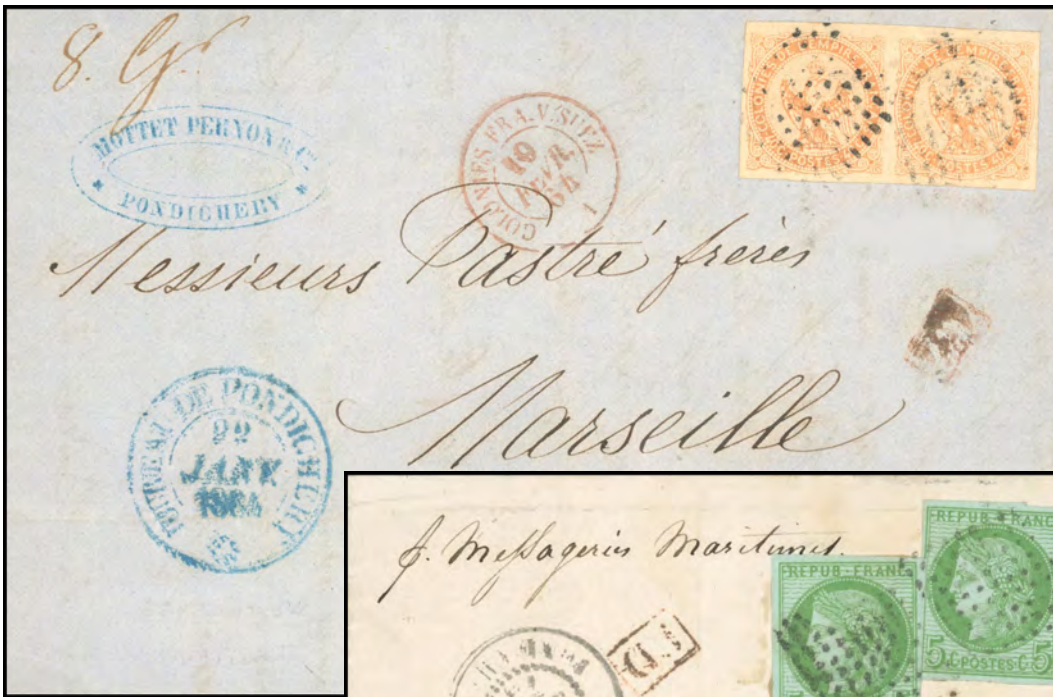 8. Gr
MOTTET PERNON & Cie
PONDICHERY
COLONIES FRA. V. SUEZ
19
FEVR.
64
1
COLONIES DE L'EMPIRE
POSTES
COLONIES DE L'EMPIRE
POSTES
Messieurs Pastré frères
Marseille
DE PONDICHERY
22
JANV.
1864
p. Messageries Maritimes.
P.D.
REPUB. FRANC
REPUB. FRANC
5 C. POSTES C. 5